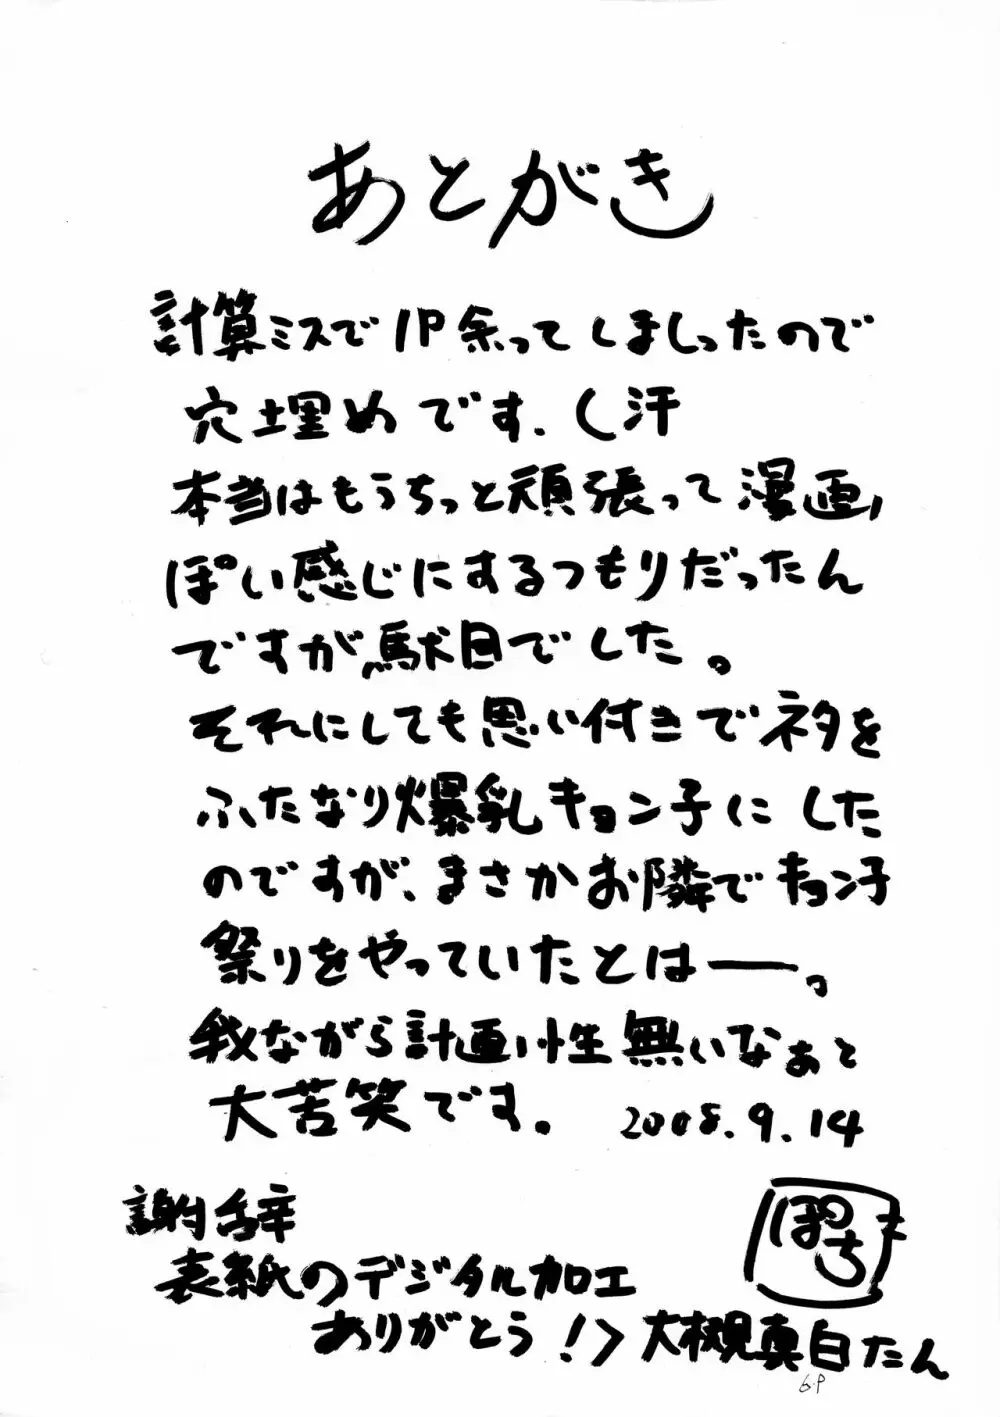 あとがき
計算ミスで1P余ってしましったので
穴埋めです、(汗
本当はもうちっと頑張って漫画っ
ぽい感じにするつもりだったん
ですが駄目でした。
それにしても思い付きでネタを
ふたなり爆乳キョン子にした
のですが、まさかお隣でキョン子
祭りをやっていたとはー。
我ながら計画性無いなぁと
大苦笑です。 2008.9.14
謝辞
ぽち
表紙のデジタル加工
ありがとう!>大槻真白たん
6P